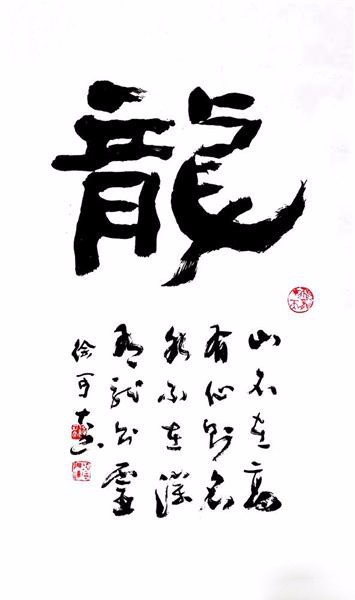 龍
山不在高
有仙則名
水不在深
有龍則靈
徐可